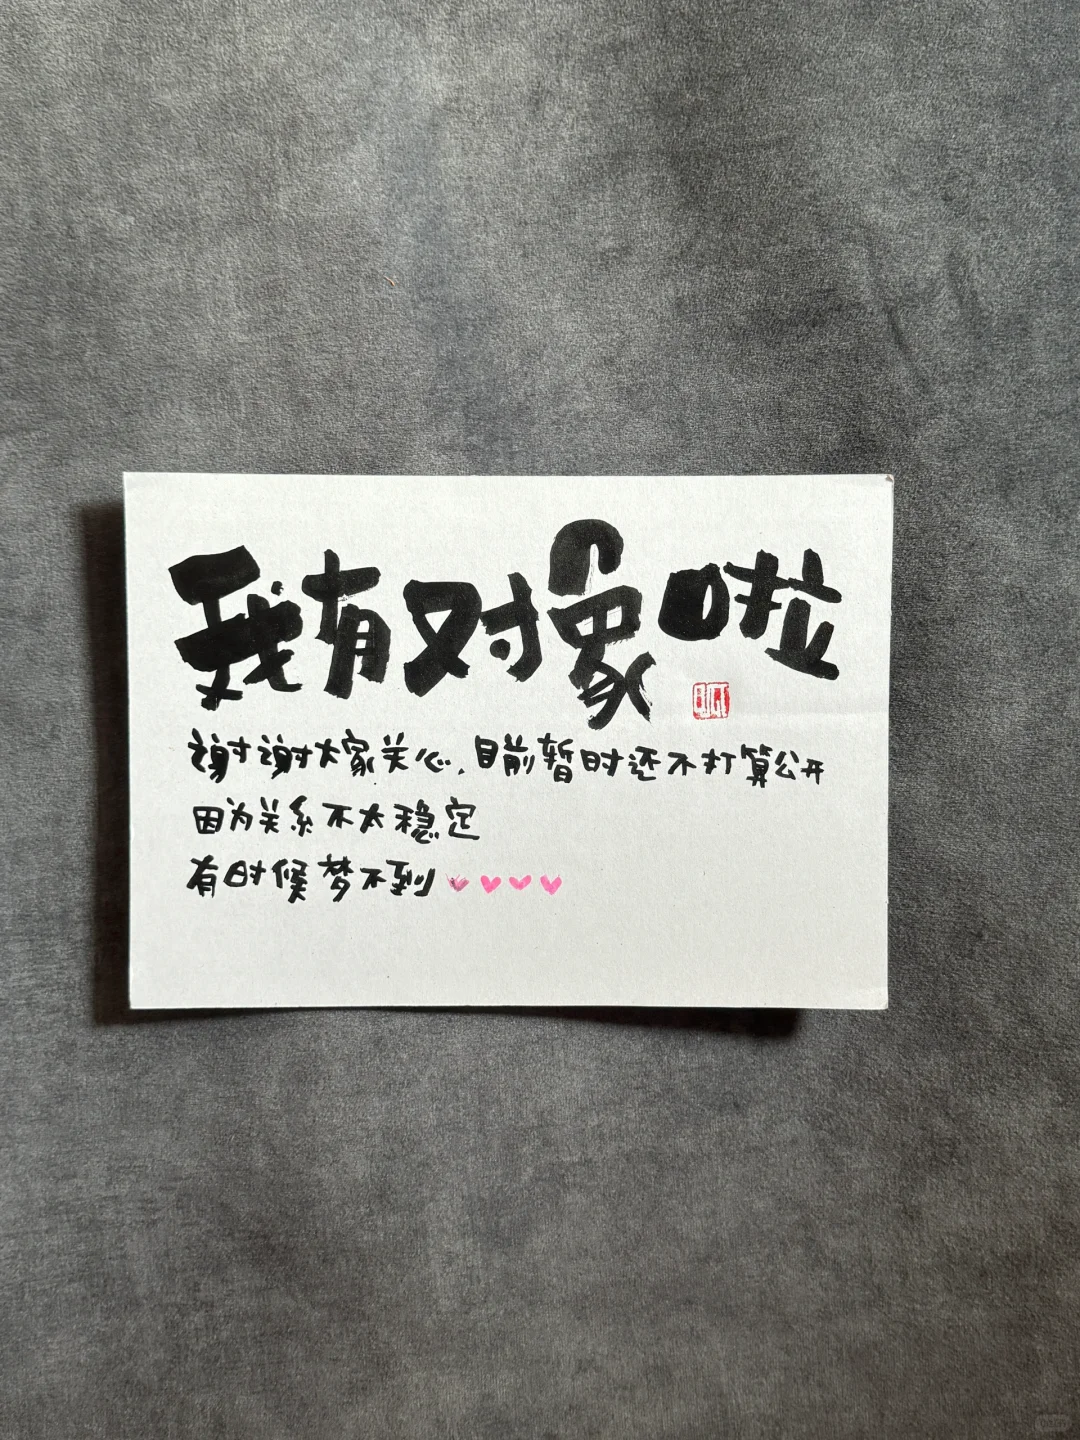 我有对象啦
谢谢大家关心,目前暂时还不打算公开
因为关系不太稳定
有时候梦不到